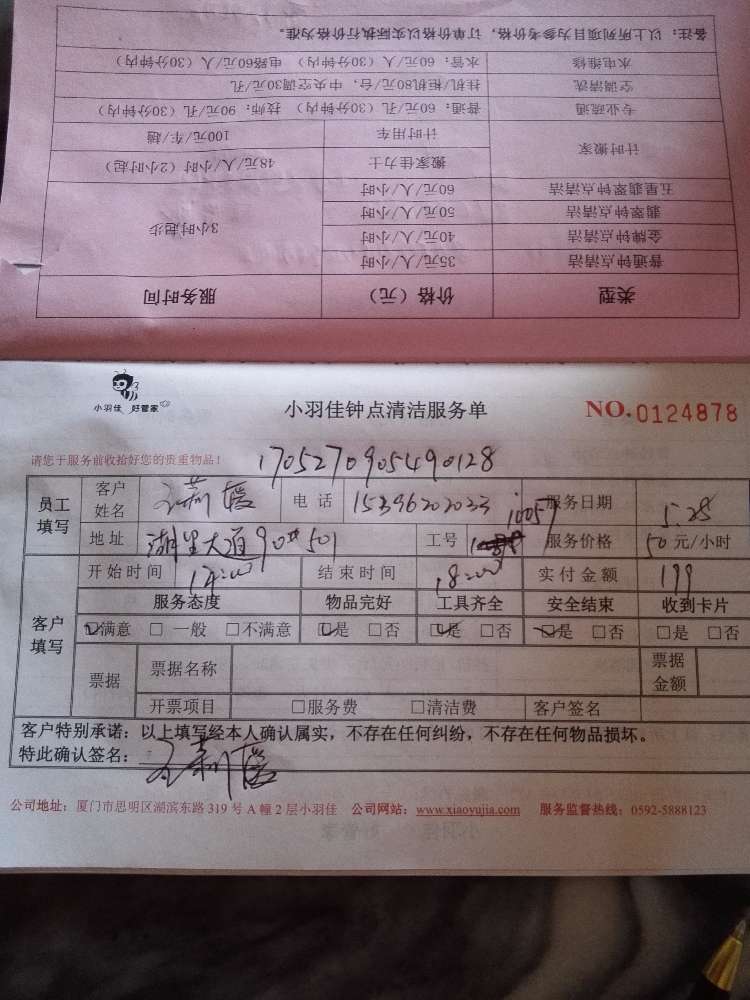 类型 价格（元） 服务时间
普通钟点清洁 35元/人/小时 3小时起步
金牌钟点清洁 40元/人/小时
翡翠钟点清洁 50元/人/小时
五星翡翠钟点清洁 60元/人/小时
计时搬家 搬家佳力士 48元/人/小时（2小时起）
计时用车 100元/车/趟
专业疏通 普通：60元/孔（30分钟内） 技师：90元/孔（30分钟内）
空调清洗 挂机/柜机80元/台，中央空调30元/孔
水电维修 水管：60元/人（30分钟内） 电路60元/人（30分钟内）
备注：以上所列项目为参考价格，订单价格以实际执行价格为准。
小羽佳 好管家
小羽佳钟点清洁服务单
NO.0124878
请您于服务前收拾好您的贵重物品！
1705270905490128
员工填写 客户姓名 电话 15396202033 服务日期 5.28
地址 湖里大道90# 501 工号 10057 服务价格 50元/小时
客户填写 开始时间 14:00 结束时间 18:00 实付金额 199
服务态度 物品完好 工具齐全 安全结束 收到卡片
☑满意 □一般 □不满意 ☑是 □否 ☑是 □否 ☑是 □否 □是 □否
票据 票据名称 票据金额
开票项目 □服务费 □清洁费 客户签名
客户特别承诺：以上填写经本人确认属实，不存在任何纠纷，不存在任何物品损坏。
特此确认签名：
公司地址：厦门市思明区湖滨东路319号A幢2层小羽佳 公司网站：www.xiaoyujia.com 服务监督热线：0592-5888123